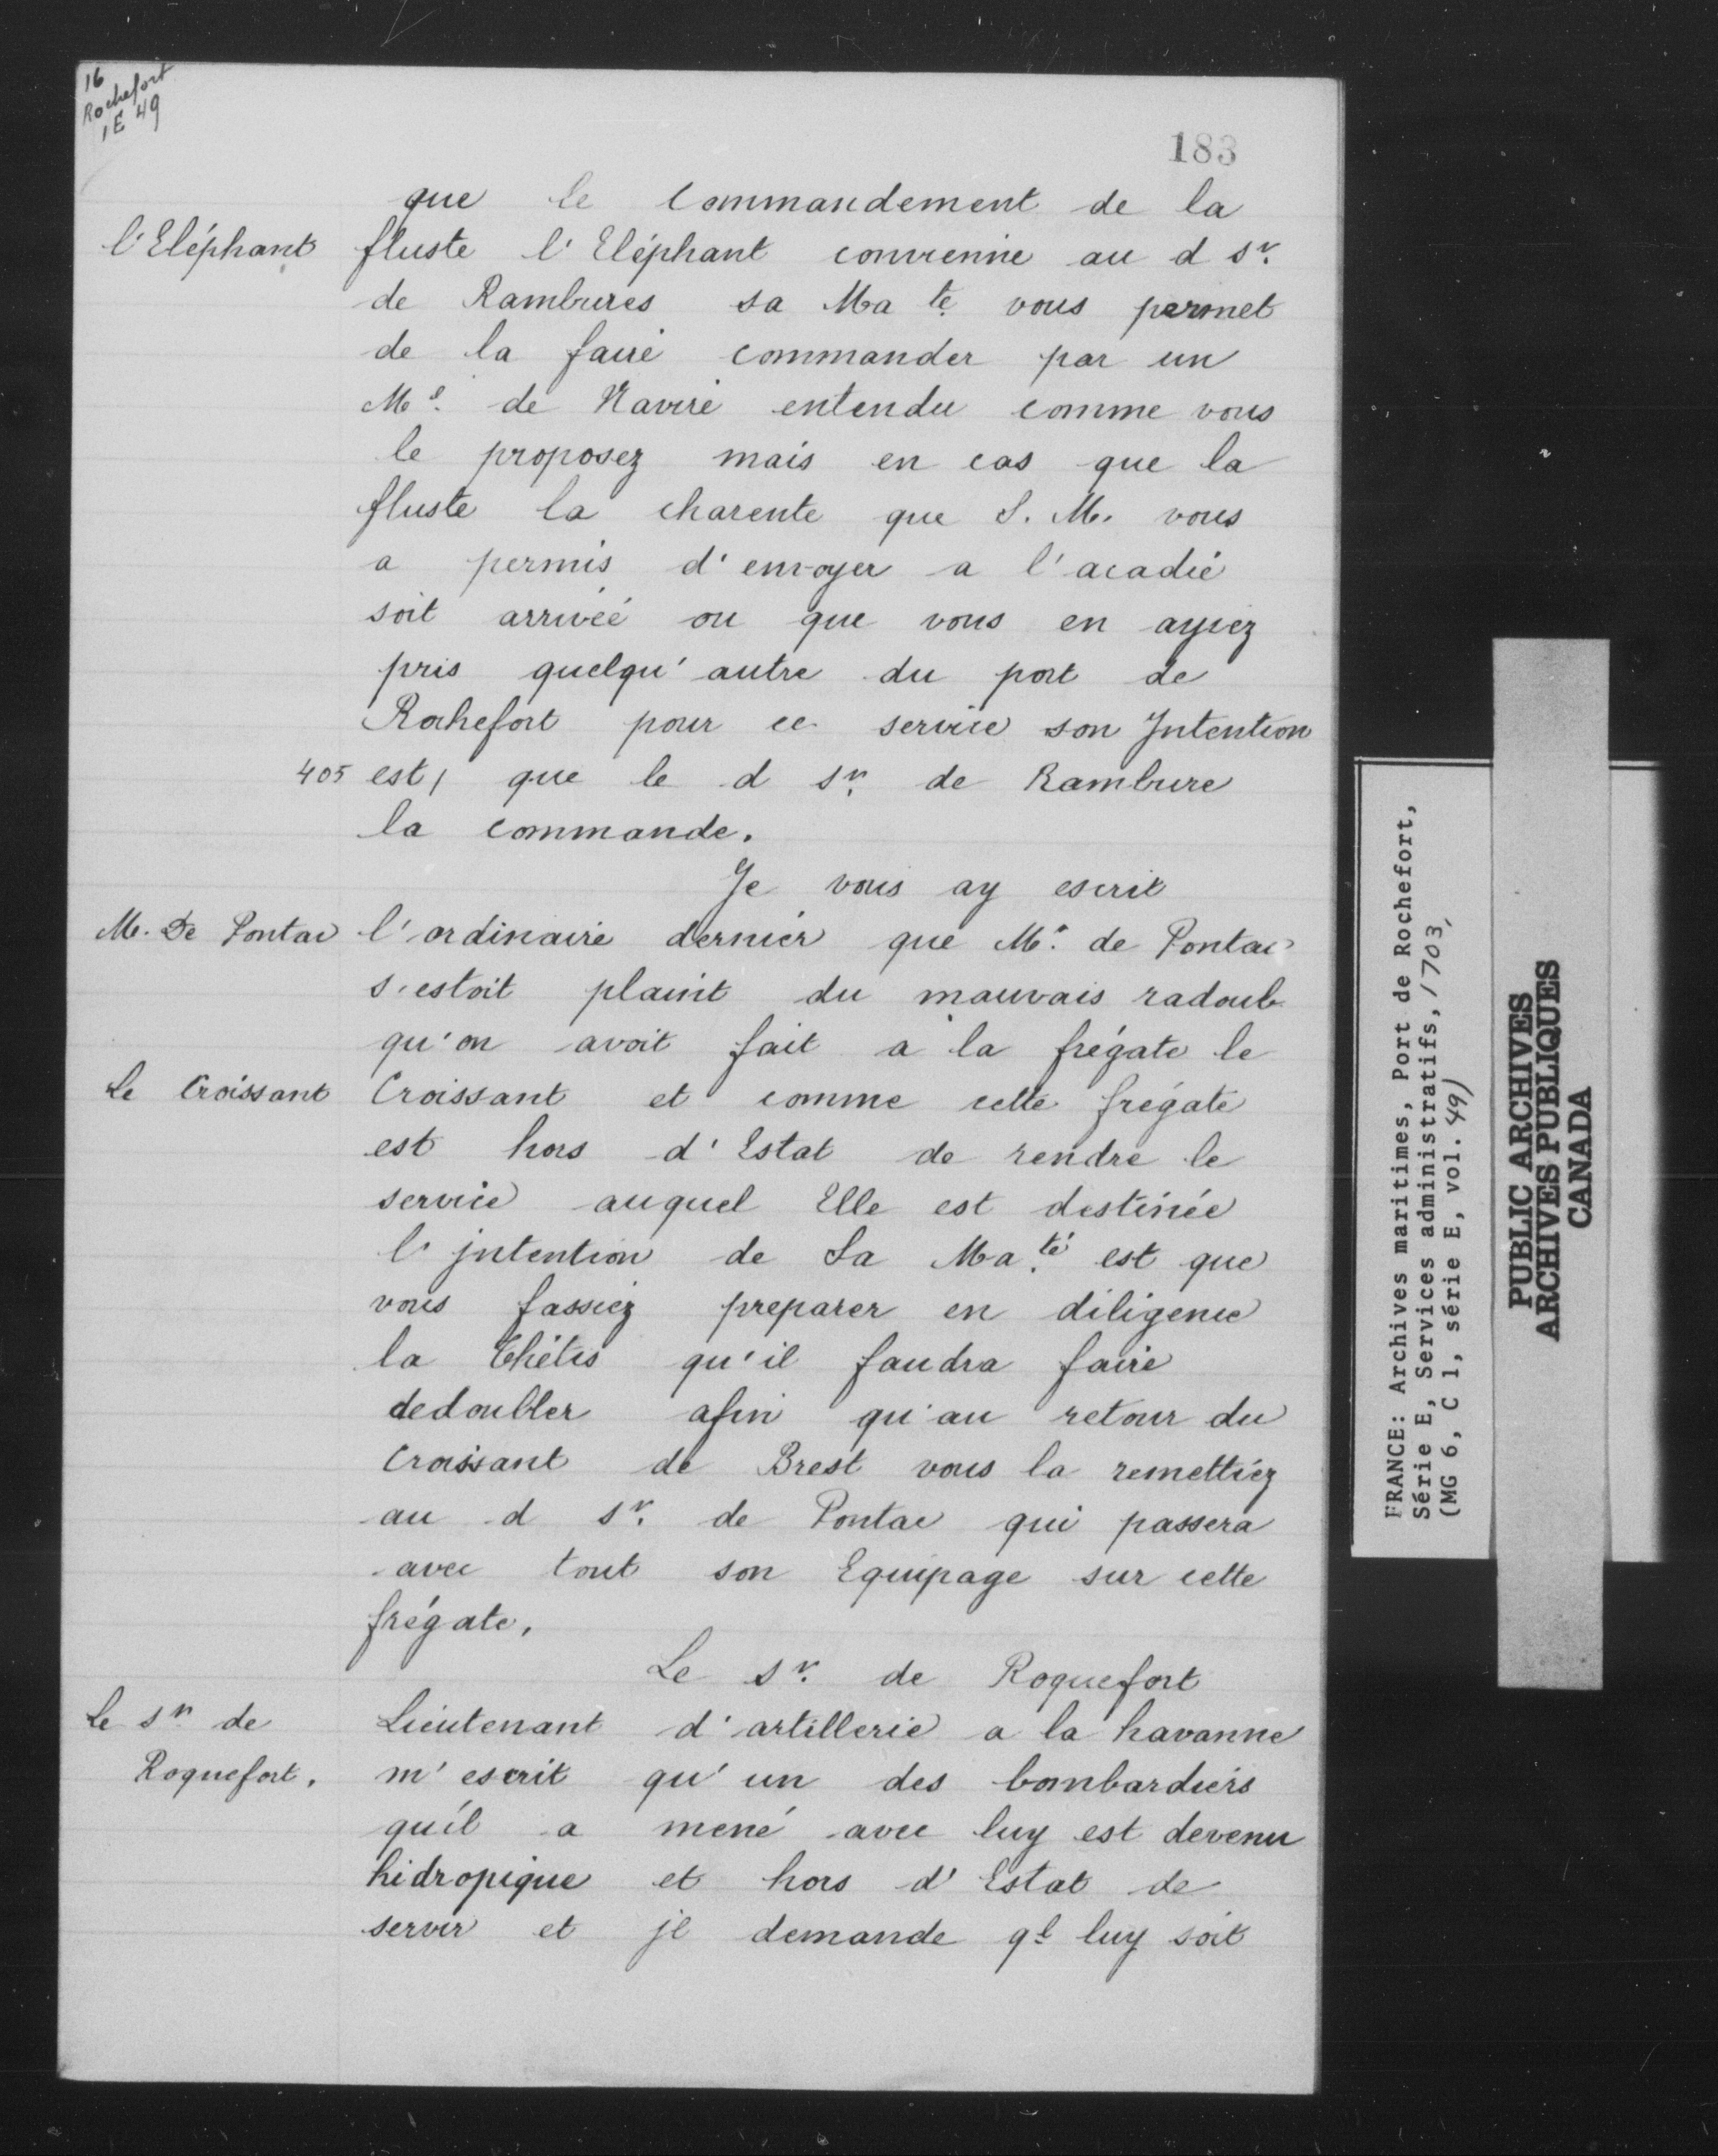 16
Rochefort
1E 49
183
que le Commandement de la
l'Eléphant fluste l'Eléphant convienne au d sr.
de Rambures sa Ma te. vous permet
de la faire commander par un
Me. de Navire entendu comme vous
le proposez mais en cas que la
fluste la charente que S. M. vous
a permis d'envoyer a l'acadie
soit arrivée ou que vous en ayiez
pris quelqu'autre du port de
Rochefort pour ce service son Intention
405 est, que le d sr. de Rambure
la commande.
Je vous ay escrit
M. De Pontac l'ordinaire dernier que Mr. de Pontac
s'estoit plaint du mauvais radoub
qu'on avoit fait a la frégate le
Le Croissant Croissant et comme cette frégate
est hors d'Estat de rendre le
service auquel Elle est destinée
l'intention de Sa Ma.té est que
vous fassiez preparer en diligence
la Thétis qu'il faudra faire
dedoubler afin qu'au retour du
Croissant de Brest vous la remettiez
au d sr. de Pontac qui passera
avec tout son Equipage sur cette
frégate.
Le sr. de Roquefort
Le sr. de Lieutenant d'artillerie a la havanne
Roquefort. m'escrit qu'un des bombardiers
qu'il a mené avec luy est devenu
hidropique et hors d'Estat de
servir et jl demande ql luy soit
FRANCE: Archives maritimes, Port de Rochefort,
Série E, Services administratifs, 1703,
(MG 6, C 1, série E, vol. 49)
PUBLIC ARCHIVES
ARCHIVES PUBLIQUES
CANADA